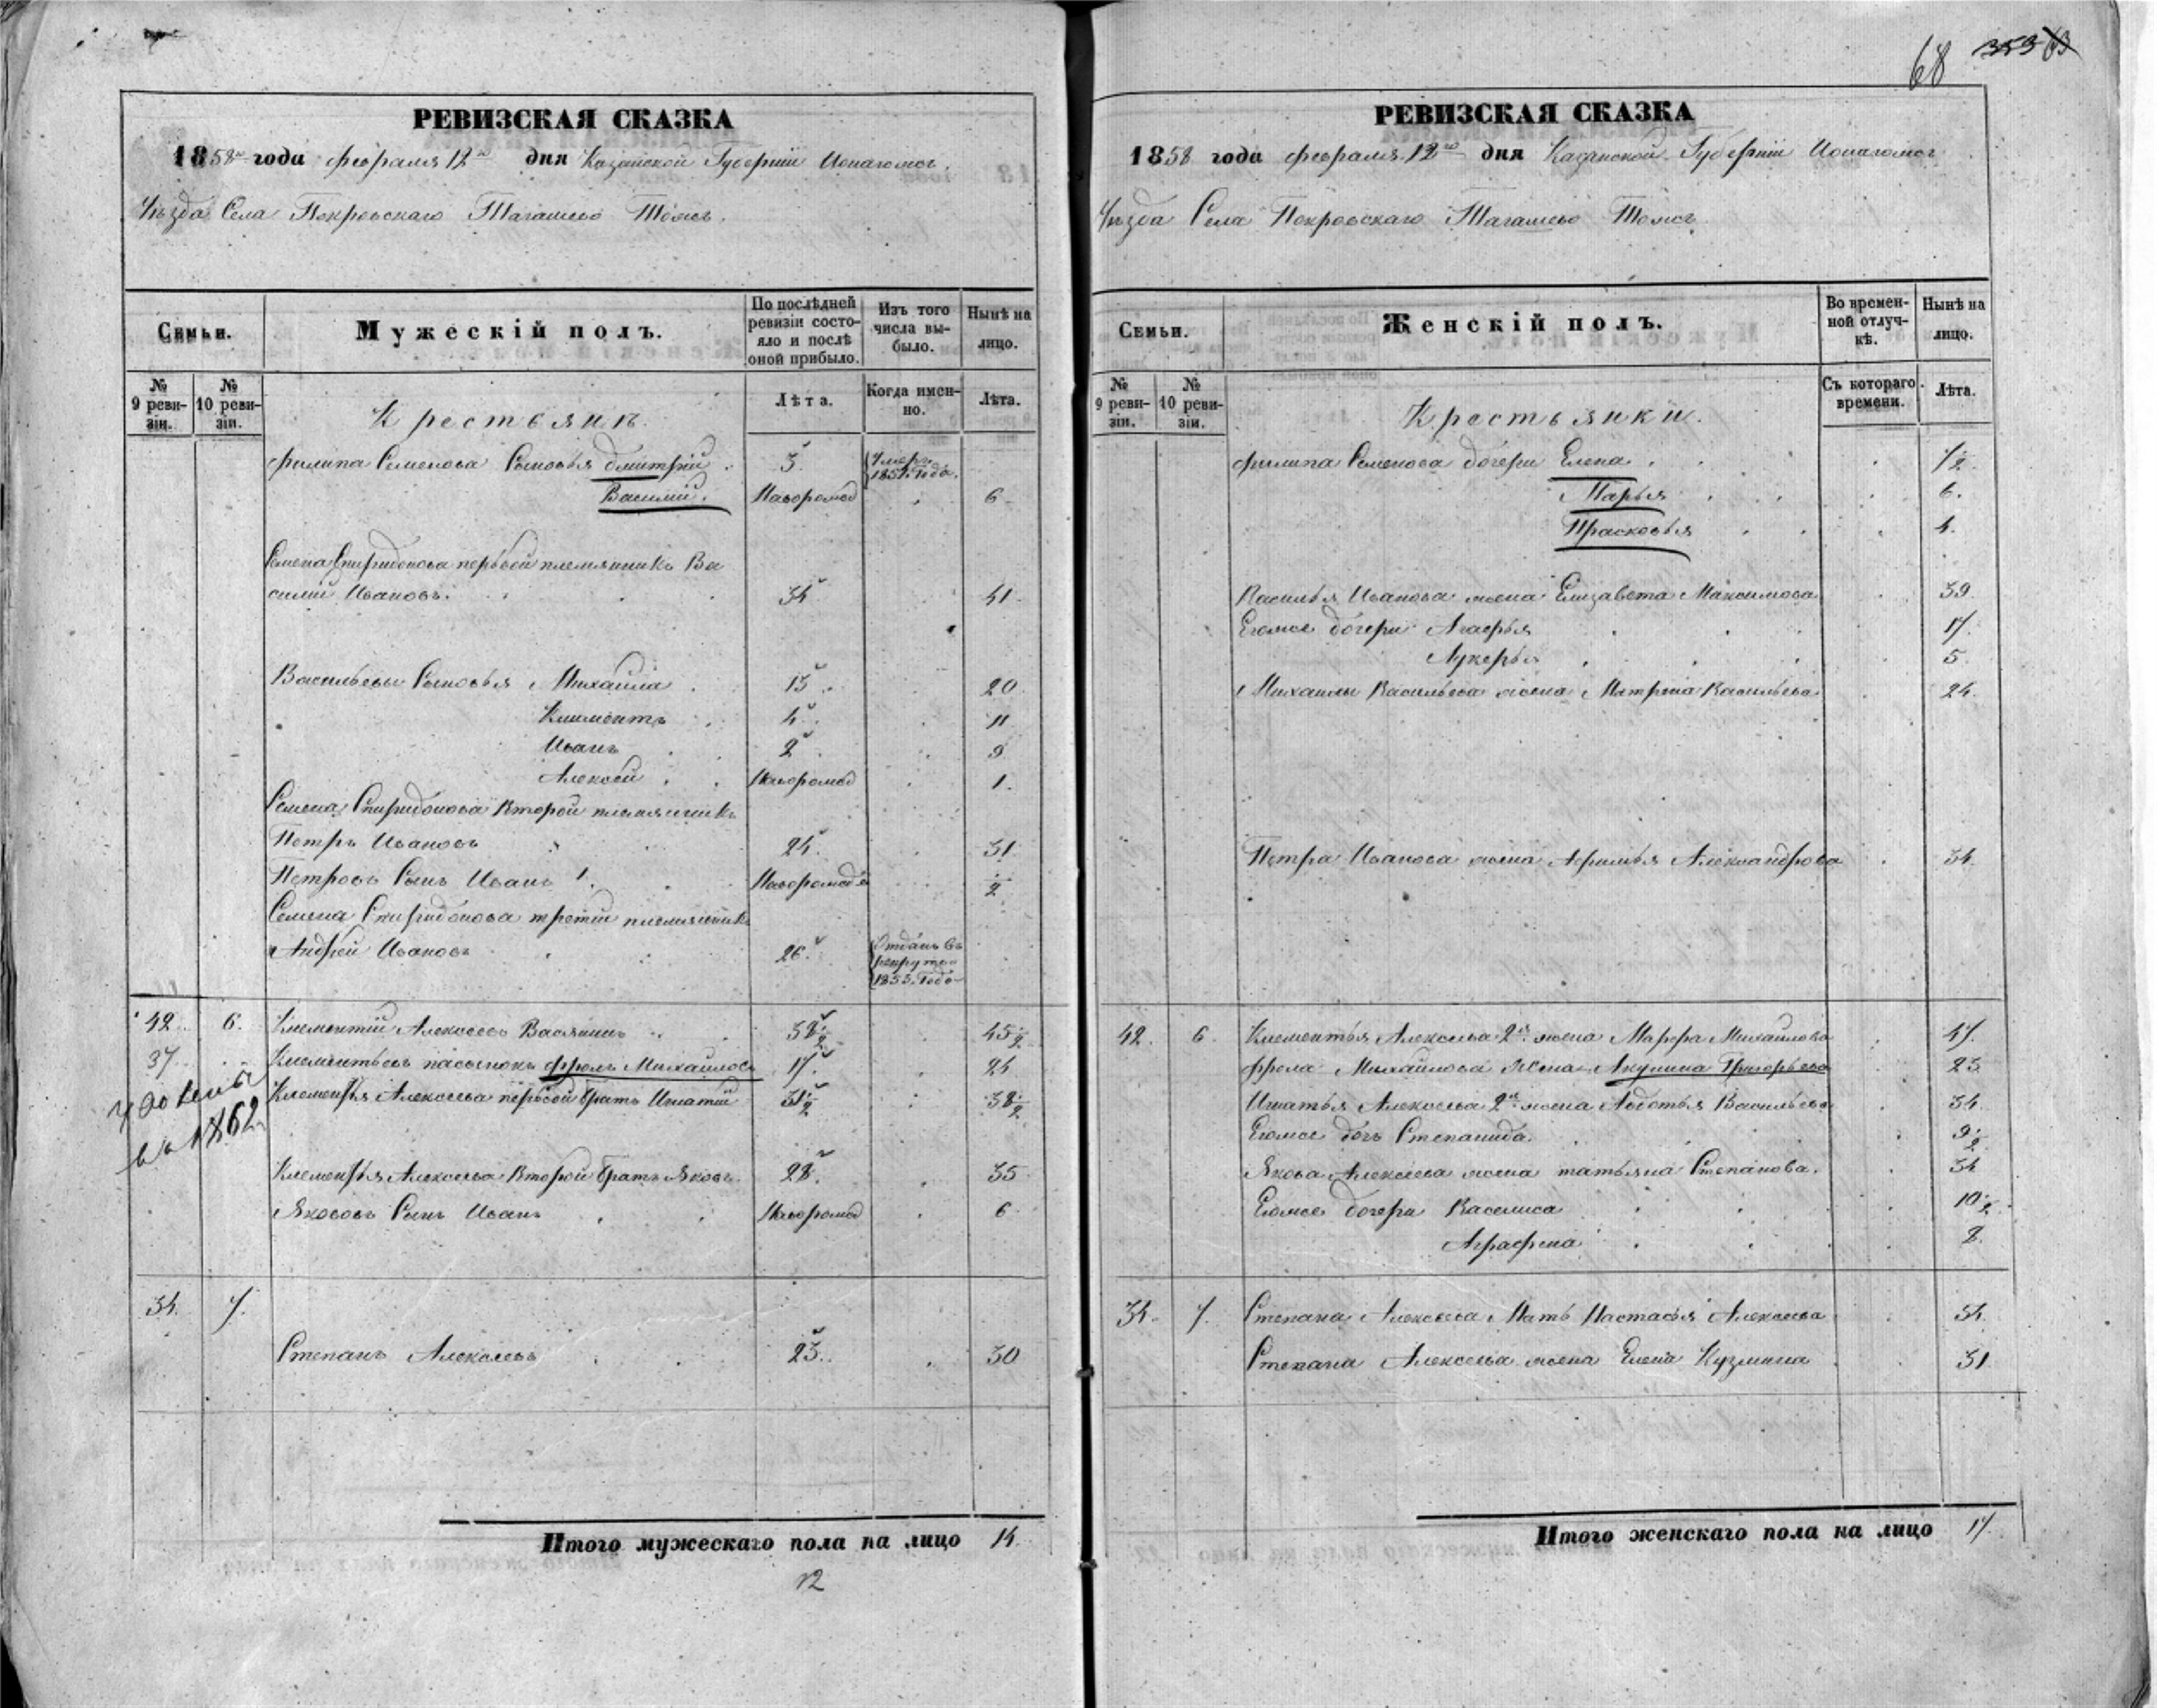 68 353 63
РЕВИЗСКАЯ СКАЗКА
1858го года февраля 12го дня Казанской Губернии
Уѣзда Села Покровскаго Тагашево Тожъ.
Семьи.
Мужескій полъ.
По послѣдней ревизіи состояло и послѣ оной прибыло.
Изъ того числа выбыло.
Нынѣ на лицо.
№ 9 ревизіи.
№ 10 ревизіи.
Лѣта.
Когда именно.
Лѣта.
Крестьянъ.
Филипа Семенова Сыновья Дмитрій 3. Умеръ 1851 Года.
Василий. Новорожд 6
Семена Спиридонова первой племянникъ Ва
силий Ивановъ. 34 41
Васильевы Сыновья Михайла 13 20
Климентъ 4 11
Иванъ 2 9
Алексей Новорожд 1.
Семена Спиридонова Второй племянникъ
Петръ Ивановъ 24. 31
Петровъ Сынъ Иванъ Новорожд ½
Семена Спиридонова третий племянникъ
Андрей Ивановъ 26. Отданъ въ рекруты 1855 Года
42. 6. Клементий Алексеевъ Васянинъ 38½ 45½
37 Клементьевъ пасынокъ Фролъ Михайловъ 17. 24
Клементья Алексеева первой братъ Игнатий 31½ 38½
въ 1862
Клементья Алексеева Второй братъ Яковъ. 28. 35
Яковъ Сынъ Иванъ Новорожд 6
34. 7.
Степанъ Алексеевъ 23. 30
Итого мужескаго пола на лицо 14
12
РЕВИЗСКАЯ СКАЗКА
1858 года февраля 12го дня Казанской Губернии
Уѣзда Села Покровскаго Тагашево Тожъ
Семьи.
Женскій полъ.
Во временной отлучкѣ.
Нынѣ на лицо.
№ 9 ревизіи.
№ 10 ревизіи.
Съ котораго времени.
Лѣта.
Крестьянки.
Филипа Семенова дочери Елена ½
Марья 6.
Прасковья 4.
Василья Иванова жена Елизавета Максимова 39.
Егожъ дочери Агафья 17.
Лукерья 5
Михаилы Васильева жена Матрена Васильева 24.
Петра Иванова жена Афимья Александрова 34.
42. 6. Клементья Алексеева 2я жена Марфа Михайлова 47.
Фрола Михайлова Жена Акулина Григорьева 23
Игнатья Алексеева 2я жена Авдотья Васильева 34.
Егоже дочь Степанида. 9½
Якова Алексеева жена татьяна Степанова. 34
Егоже дочери Василиса 10½
Аграфена 8.
34. 7. Степана Алексеева Мать Настасья Алексеева 54.
Степана Алексеева жена Елена Кузмина 31
Итого женскаго пола на лицо 17.